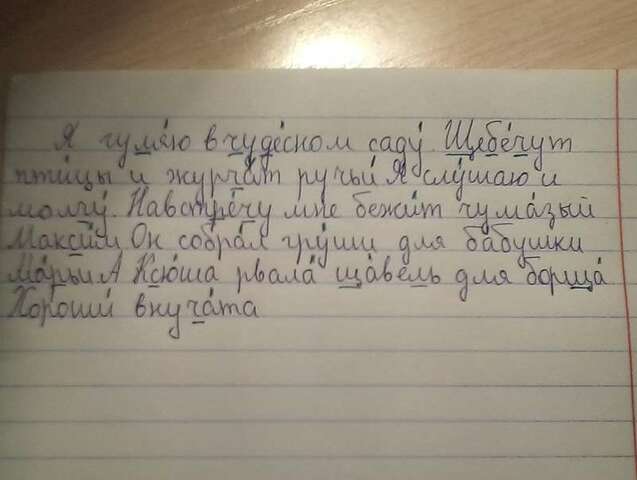 Я гуляю в чудесном саду. Щебечут
птицы и журчат ручьи Я слушаю и
молчу. Навстречу мне бежит чумазый
Максим Он собрал груши для бабушки
Марьи А Ксюша рвала щавель для борща
Хороший внучата